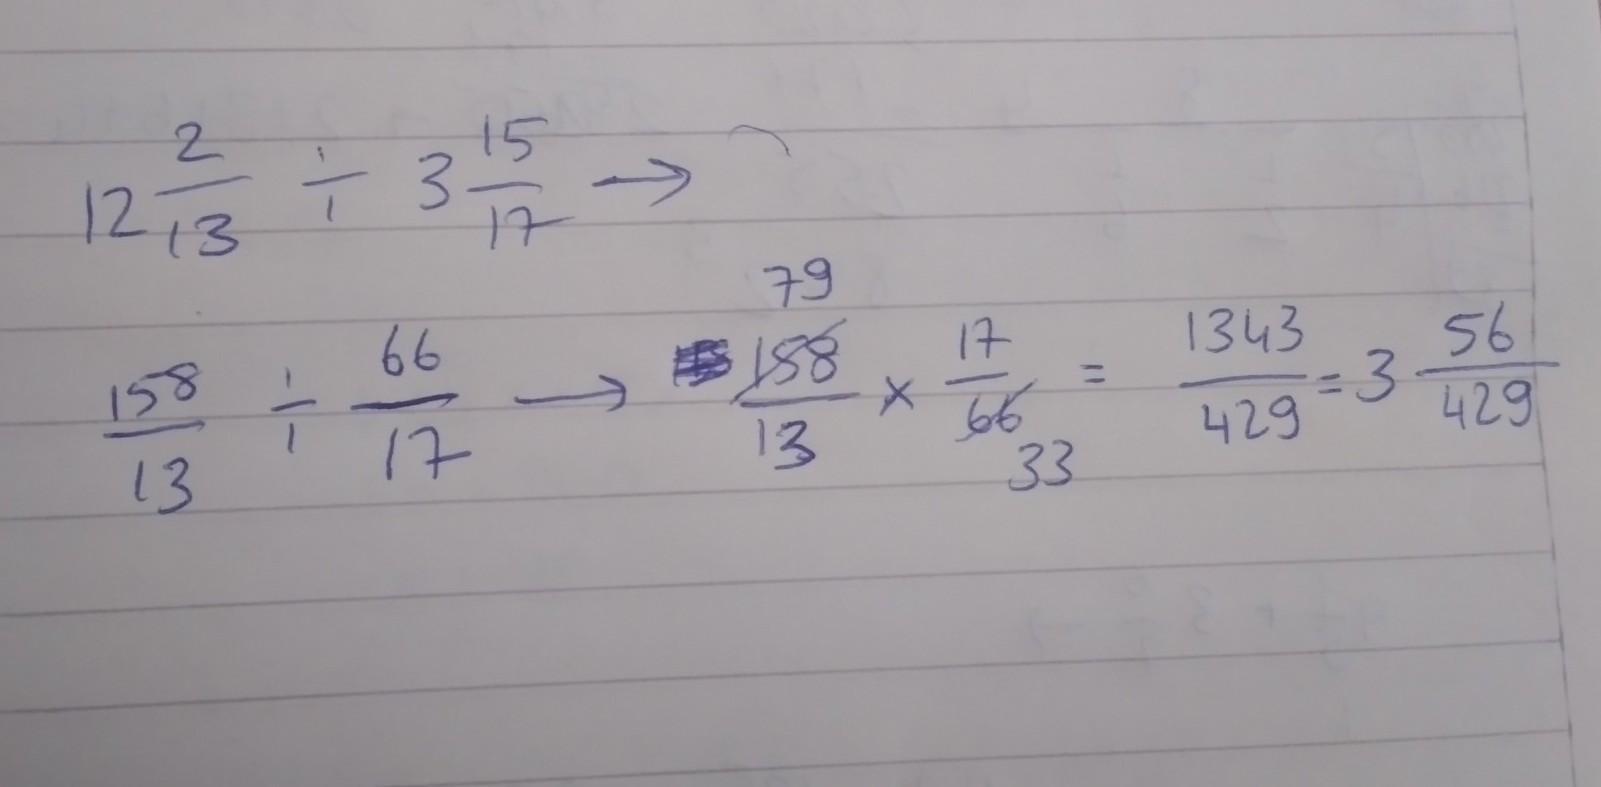 12 2/13 ÷ 3 15/17 →
158/13 ÷ 66/17 → 79 158/13 × 17/66 33 = 1343/429 = 3 56/429